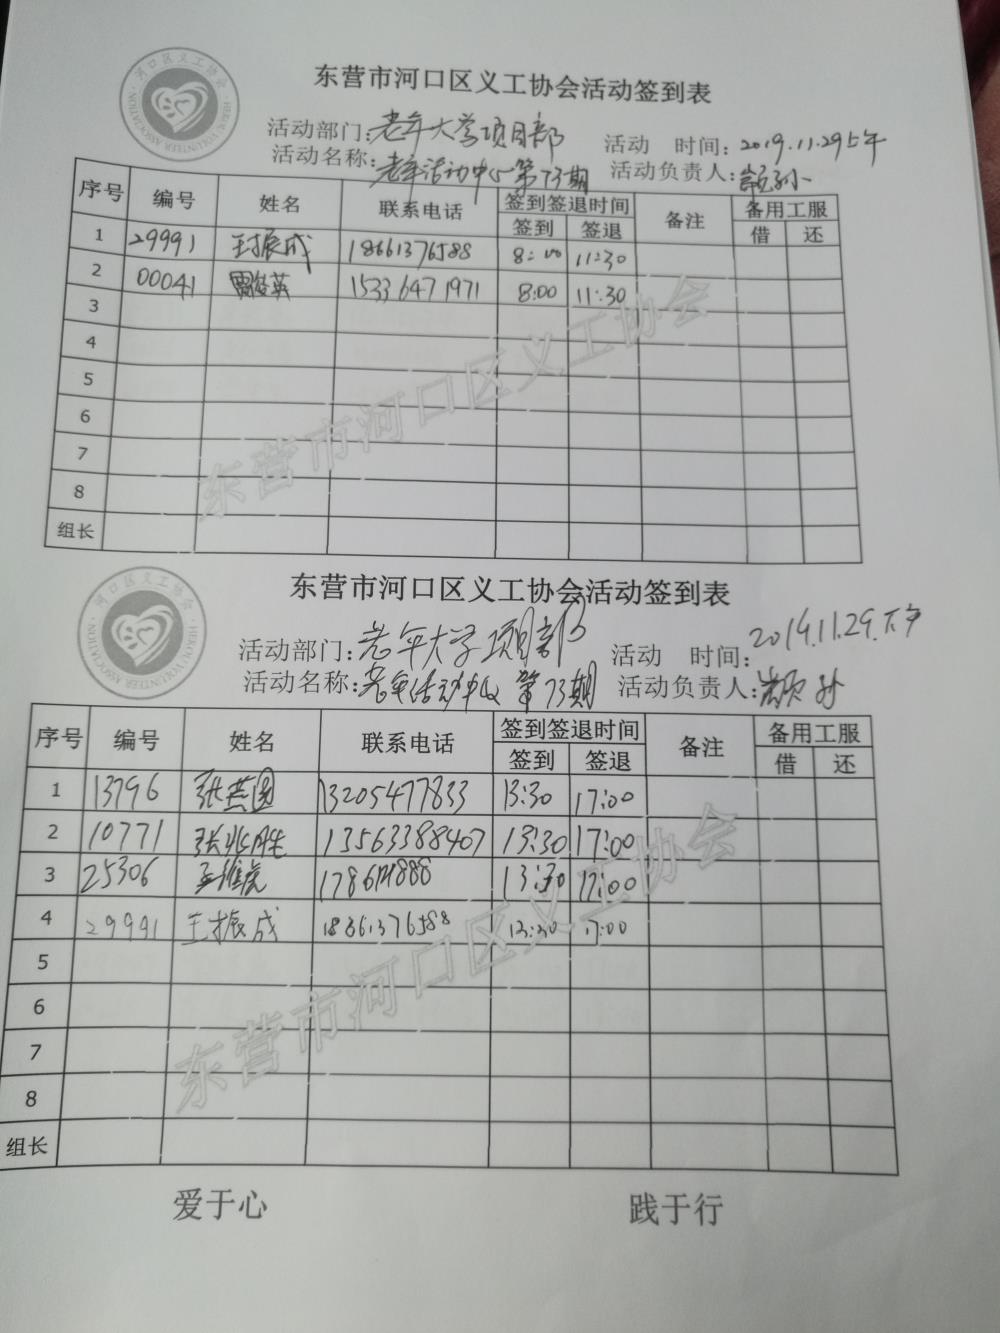 东营市河口区义工协会活动签到表
河口区义工协会
HEKOU VOLUNTEER ASSOCIATION
活动部门:老年大学项目部 活动 时间:2019.11.29上午
活动名称:老年活动中心第73期 活动负责人:
序号 编号 姓名 联系电话 签到签退时间 备注 备用工服
签到 签退 借 还
1 29991 王振成 18661376588 8:00 11:30
2 00041 15336471971 8:00 11:30
3
4
5
6
7
8
组长
东营市河口区义工协会
东营市河口区义工协会活动签到表
河口区义工协会
HEKOU VOLUNTEER ASSOCIATION
活动部门:老年大学项目部 活动 时间:2019.11.29.下午
活动名称:老年活动中心第73期 活动负责人:
序号 编号 姓名 联系电话 签到签退时间 备注 备用工服
签到 签退 借 还
1 13796 张燕圆 13205477833 13:30 17:00
2 10771 张兆胜 13563388407 13:30 17:00
3 25306 13:30 17:00
4 29991 王振成 18661376588 13:30 17:00
5
6
7
8
组长
东营市河口区义工协会
爱于心 践于行